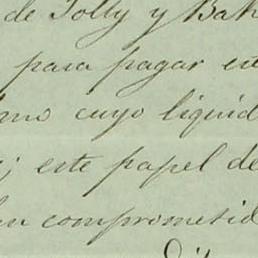 de Jolly y Bah
para pagar est
imo cuyo liquid
; este papel de
an comprometid